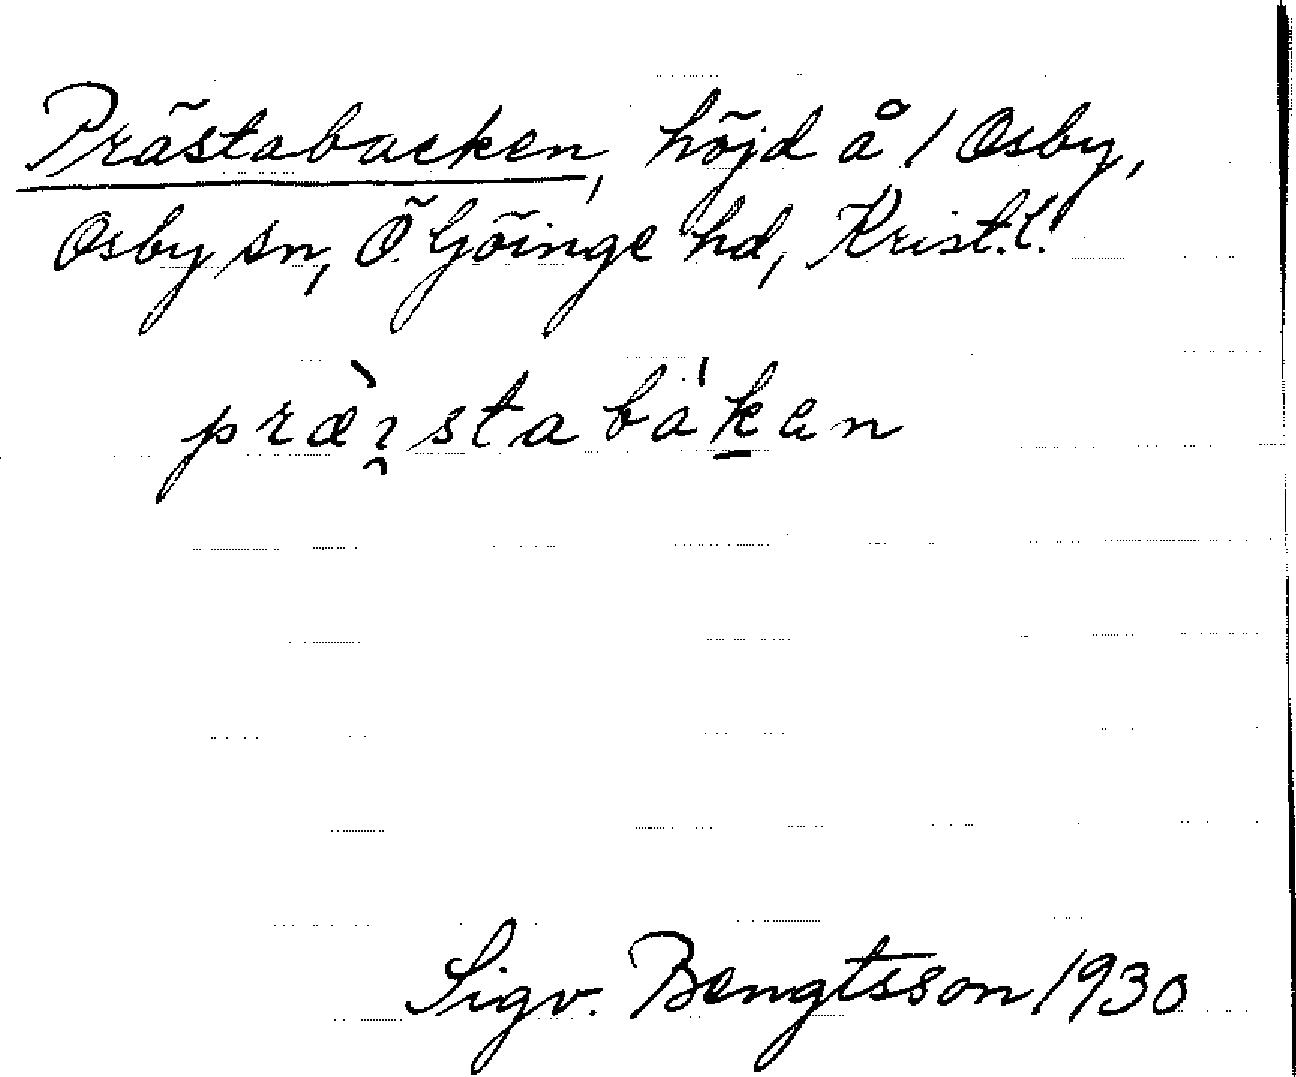 Prästabacken, höjd å 1 Osby,
Osby sn, Ö. Göinge hd, Krist. l.
præ̀ı̯stabáken
Sigv. Bengtsson 1930